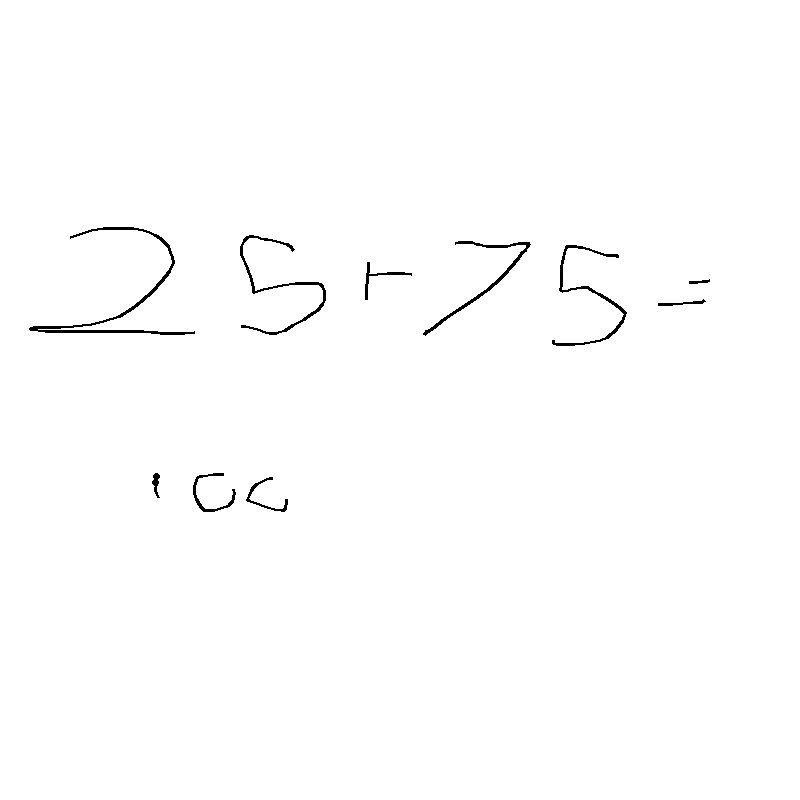 25+75=
100